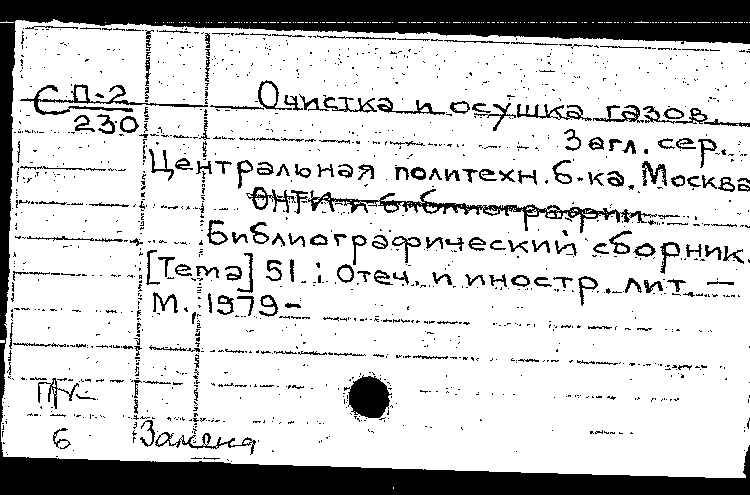 С П-2
230
Очистка и осушка газов.
Загл. сер.
Центральная политехн. б-ка. Москва
ОНТИ и библиографии.
Библиографический сборник.
[Тема] 51 : Отеч. и иностр. лит. —
М., 1979-
6 Замена